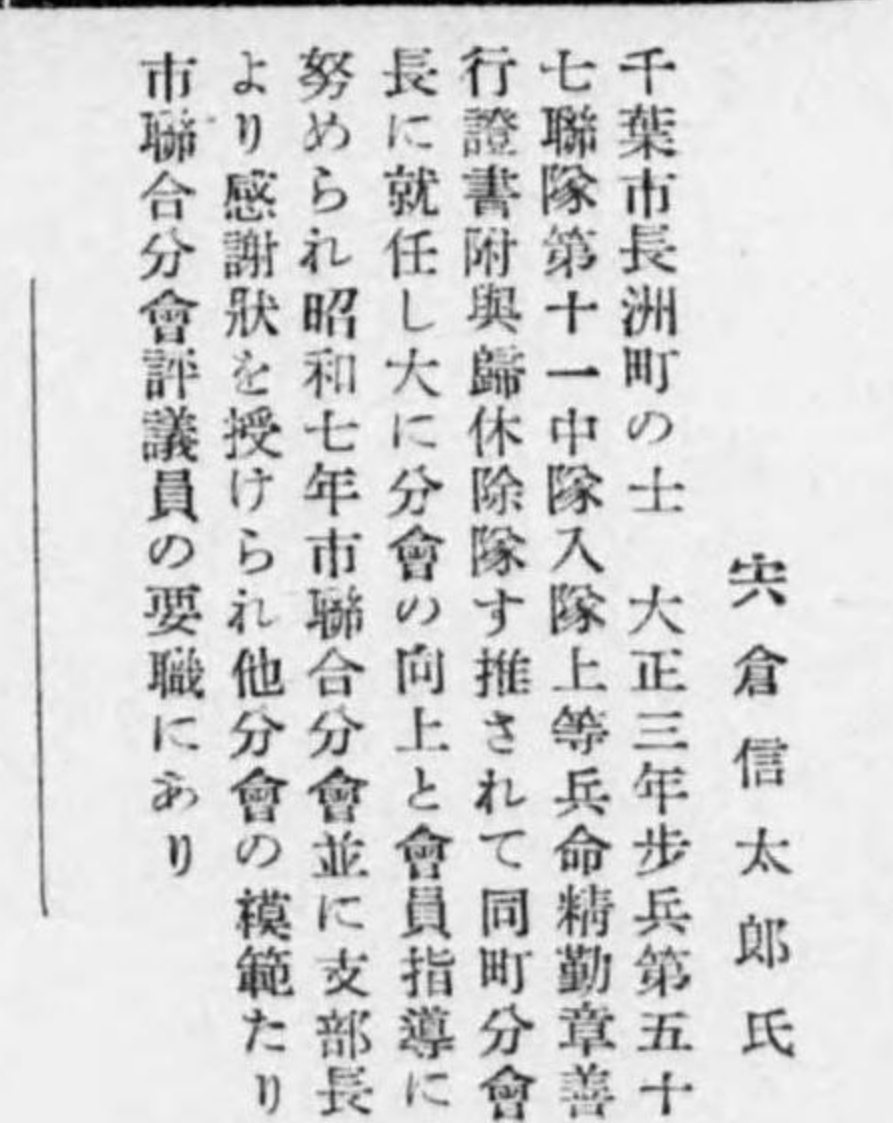 宍倉信太郎氏
千葉市長洲町の士　大正三年步兵第五十
七聯隊第十一中隊入隊上等兵命精勤章善
行證書附與歸休除隊す推されて同町分會
長に就任し大に分會の向上と會員指導に
努められ昭和七年市聯合分會並に支部長
より感謝狀を授けられ他分會の模範たり
市聯合分會評議員の要職にあり